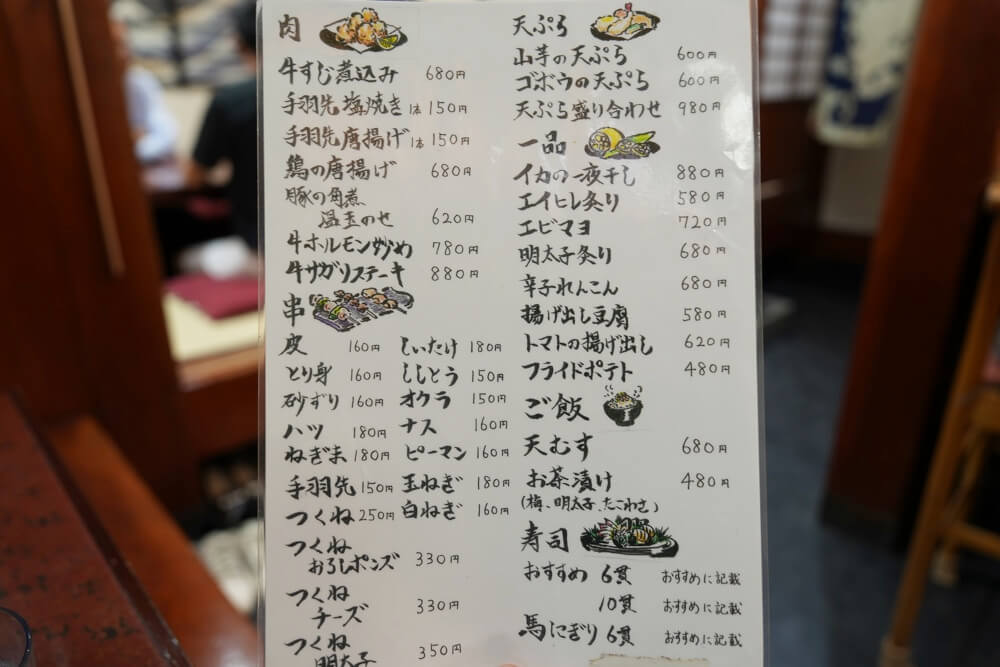 肉
牛すじ煮込み 680円
手羽先塩焼き 1本 150円
手羽先唐揚げ 1本 150円
鶏の唐揚げ 680円
豚の角煮
温玉のせ 620円
牛ホルモン炒め 780円
牛サガリステーキ 880円
串
皮 160円
とり身 160円
砂ずり 160円
ハツ 180円
ねぎま 180円
手羽先 150円
つくね 250円
つくね
おろしポンズ 330円
つくね
チーズ 330円
つくね
明太子 350円
しいたけ 180円
ししとう 150円
オクラ 150円
ナス 160円
ピーマン 160円
玉ねぎ 180円
白ねぎ 160円
天ぷら
山芋の天ぷら 600円
ゴボウの天ぷら 600円
天ぷら盛り合わせ 980円
一品
イカの一夜干し 880円
エイヒレ炙り 580円
エビマヨ 720円
明太子炙り 680円
辛子れんこん 680円
揚げ出し豆腐 580円
トマトの揚げ出し 620円
フライドポテト 480円
ご飯
天むす 680円
お茶漬け 480円
(梅、明太子、たこわさ)
寿司
おすすめ 6貫 おすすめに記載
10貫 おすすめに記載
馬にぎり 6貫 おすすめに記載